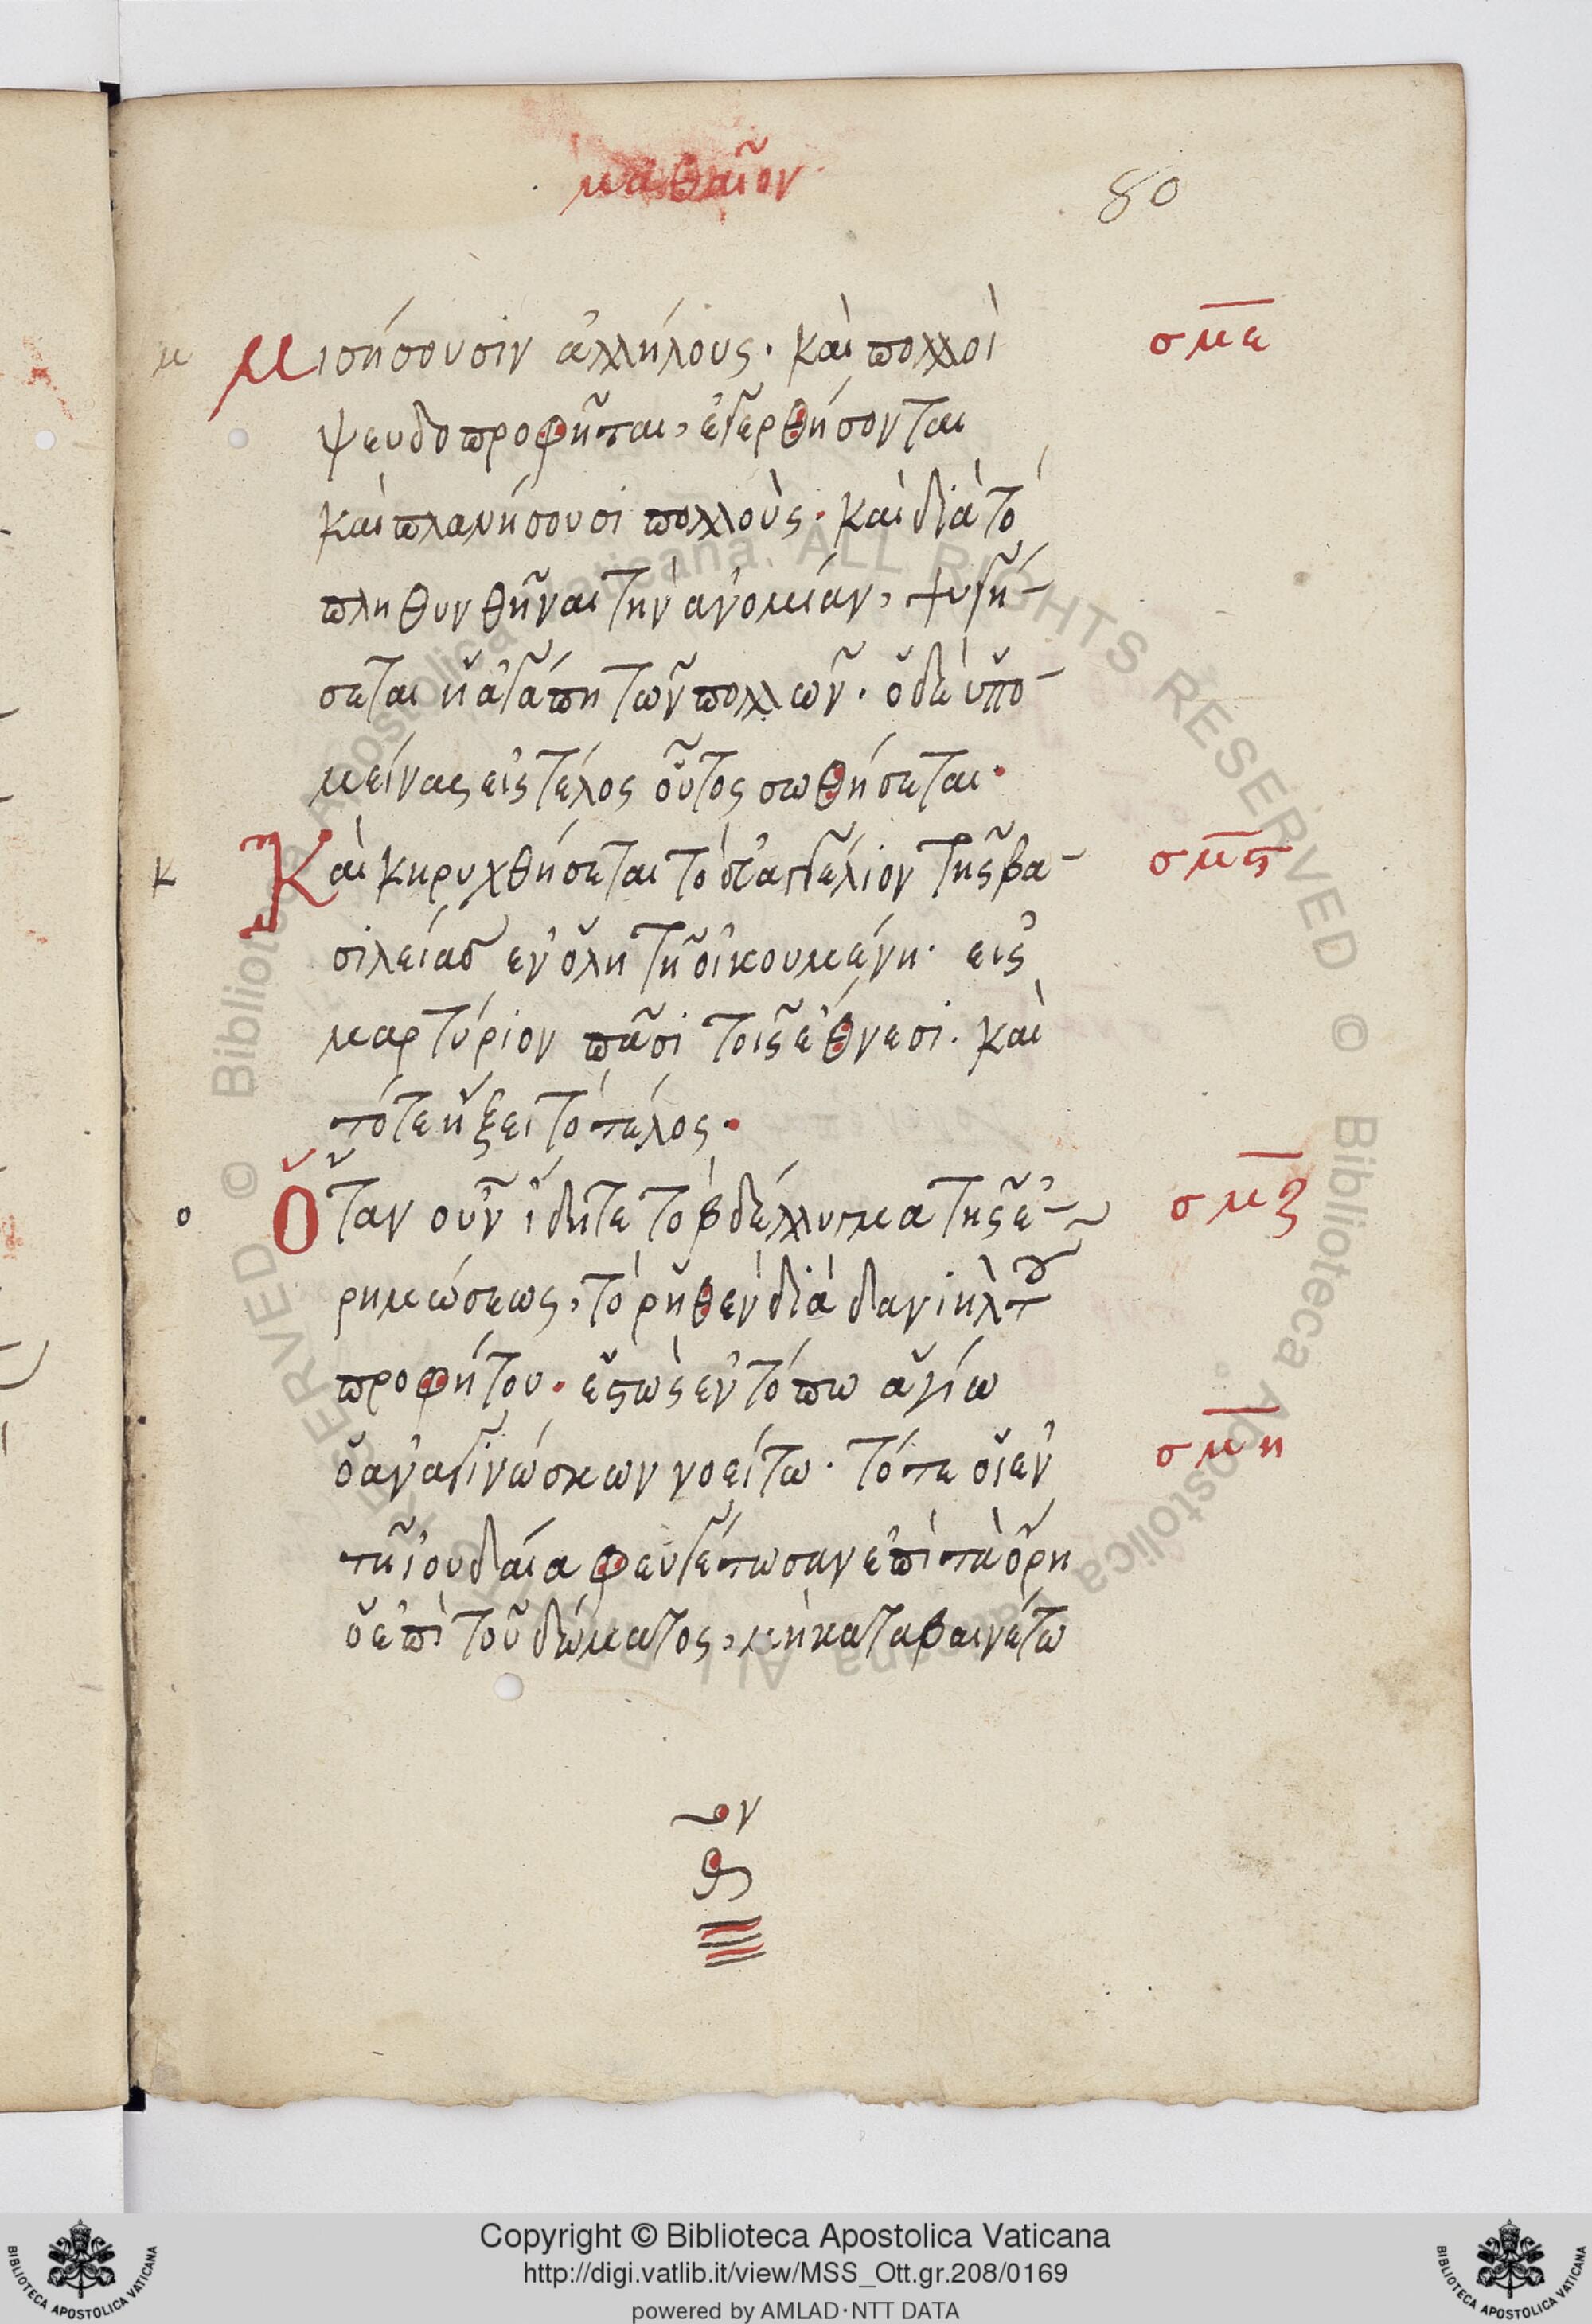 μαθαῖον
80
μ Μισήσουσιν ἀλλήλους· καὶ πολλοὶ σμε
ψευδοπροφῆται, ἐγερθήσονται
καὶ πλανήσουσι πολλοὺς· καὶ διὰ τὸ
πληθυνθῆναι τὴν ἀνομίαν, ψυγή-
σεται ἡ ἀγάπη τῶν πολλῶν· ὁ δὲ ὑπο-
μείνας εἰς τέλος οὗτος σωθήσεται·
κ Καὶ κηρυχθήσεται τὸ εὐαγγέλιον τῆς βα- σμϛ
σιλείας ἐν ὅλη τῆ οἰκουμένη· εἰς
μαρτύριον πᾶσι τοῖς ἔθνεσι· καὶ
τότε ἥξει τὸ τέλος·
ο Ὅταν οὖν ἴδητε τὸ βδέλλυγμα τῆς ἐ- σμζ
ρημώσεως, τὸ ῥηθὲν διὰ δανιὴλ τοῦ
προφήτου· ἑστὼς ἐν τόπω ἁγίω
ὁ ἀναγινώσκων νοείτω· τότε οἱ ἐν σμη
τῆ ἰουδαία φευγέτωσαν ἐπὶ τὰ ὄρη
ὁ ἐπὶ τοῦ δώματος, μὴ καταβαινέτω
Copyright © Biblioteca Apostolica Vaticana
http://digi.vatlib.it/view/MSS_Ott.gr.208/0169
powered by AMLAD·NTT DATA
BIBLIOTECA APOSTOLICA VATICANA
BIBLIOTECA APOSTOLICA VATICANA